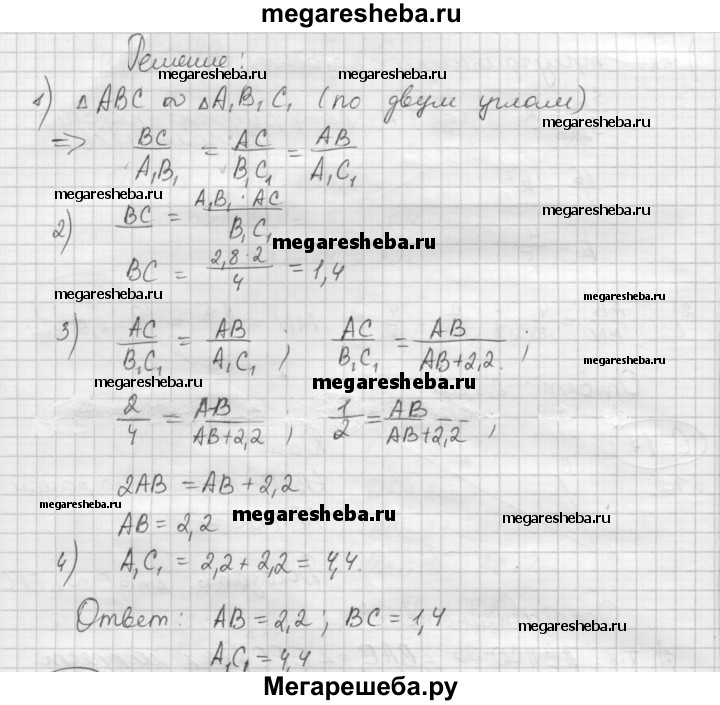 megaresheba.ru
Решение:
megaresheba.ru megaresheba.ru
1) △ABC ∾ △A₁B₁C₁ (по двум углам)
megaresheba.ru
=> BC/A₁B₁ = AC/B₁C₁ = AB/A₁C₁
megaresheba.ru megaresheba.ru
2) BC = A₁B₁ · AC/B₁C₁
megaresheba.ru
BC = 2,8·2/4 = 1,4
megaresheba.ru megaresheba.ru
3) AC/B₁C₁ = AB/A₁C₁ ; AC/B₁C₁ = AB/AB+2,2 ;
megaresheba.ru
megaresheba.ru megaresheba.ru
2/4 = AB/AB+2,2 ; 1/2 = AB/AB+2,2 ;
2AB = AB + 2,2
megaresheba.ru megaresheba.ru megaresheba.ru
AB = 2,2
4) A₁C₁ = 2,2 + 2,2 = 4,4.
Ответ: AB = 2,2 ; BC = 1,4
megaresheba.ru
A₁C₁ = 4,4
Мегарешеба.ру